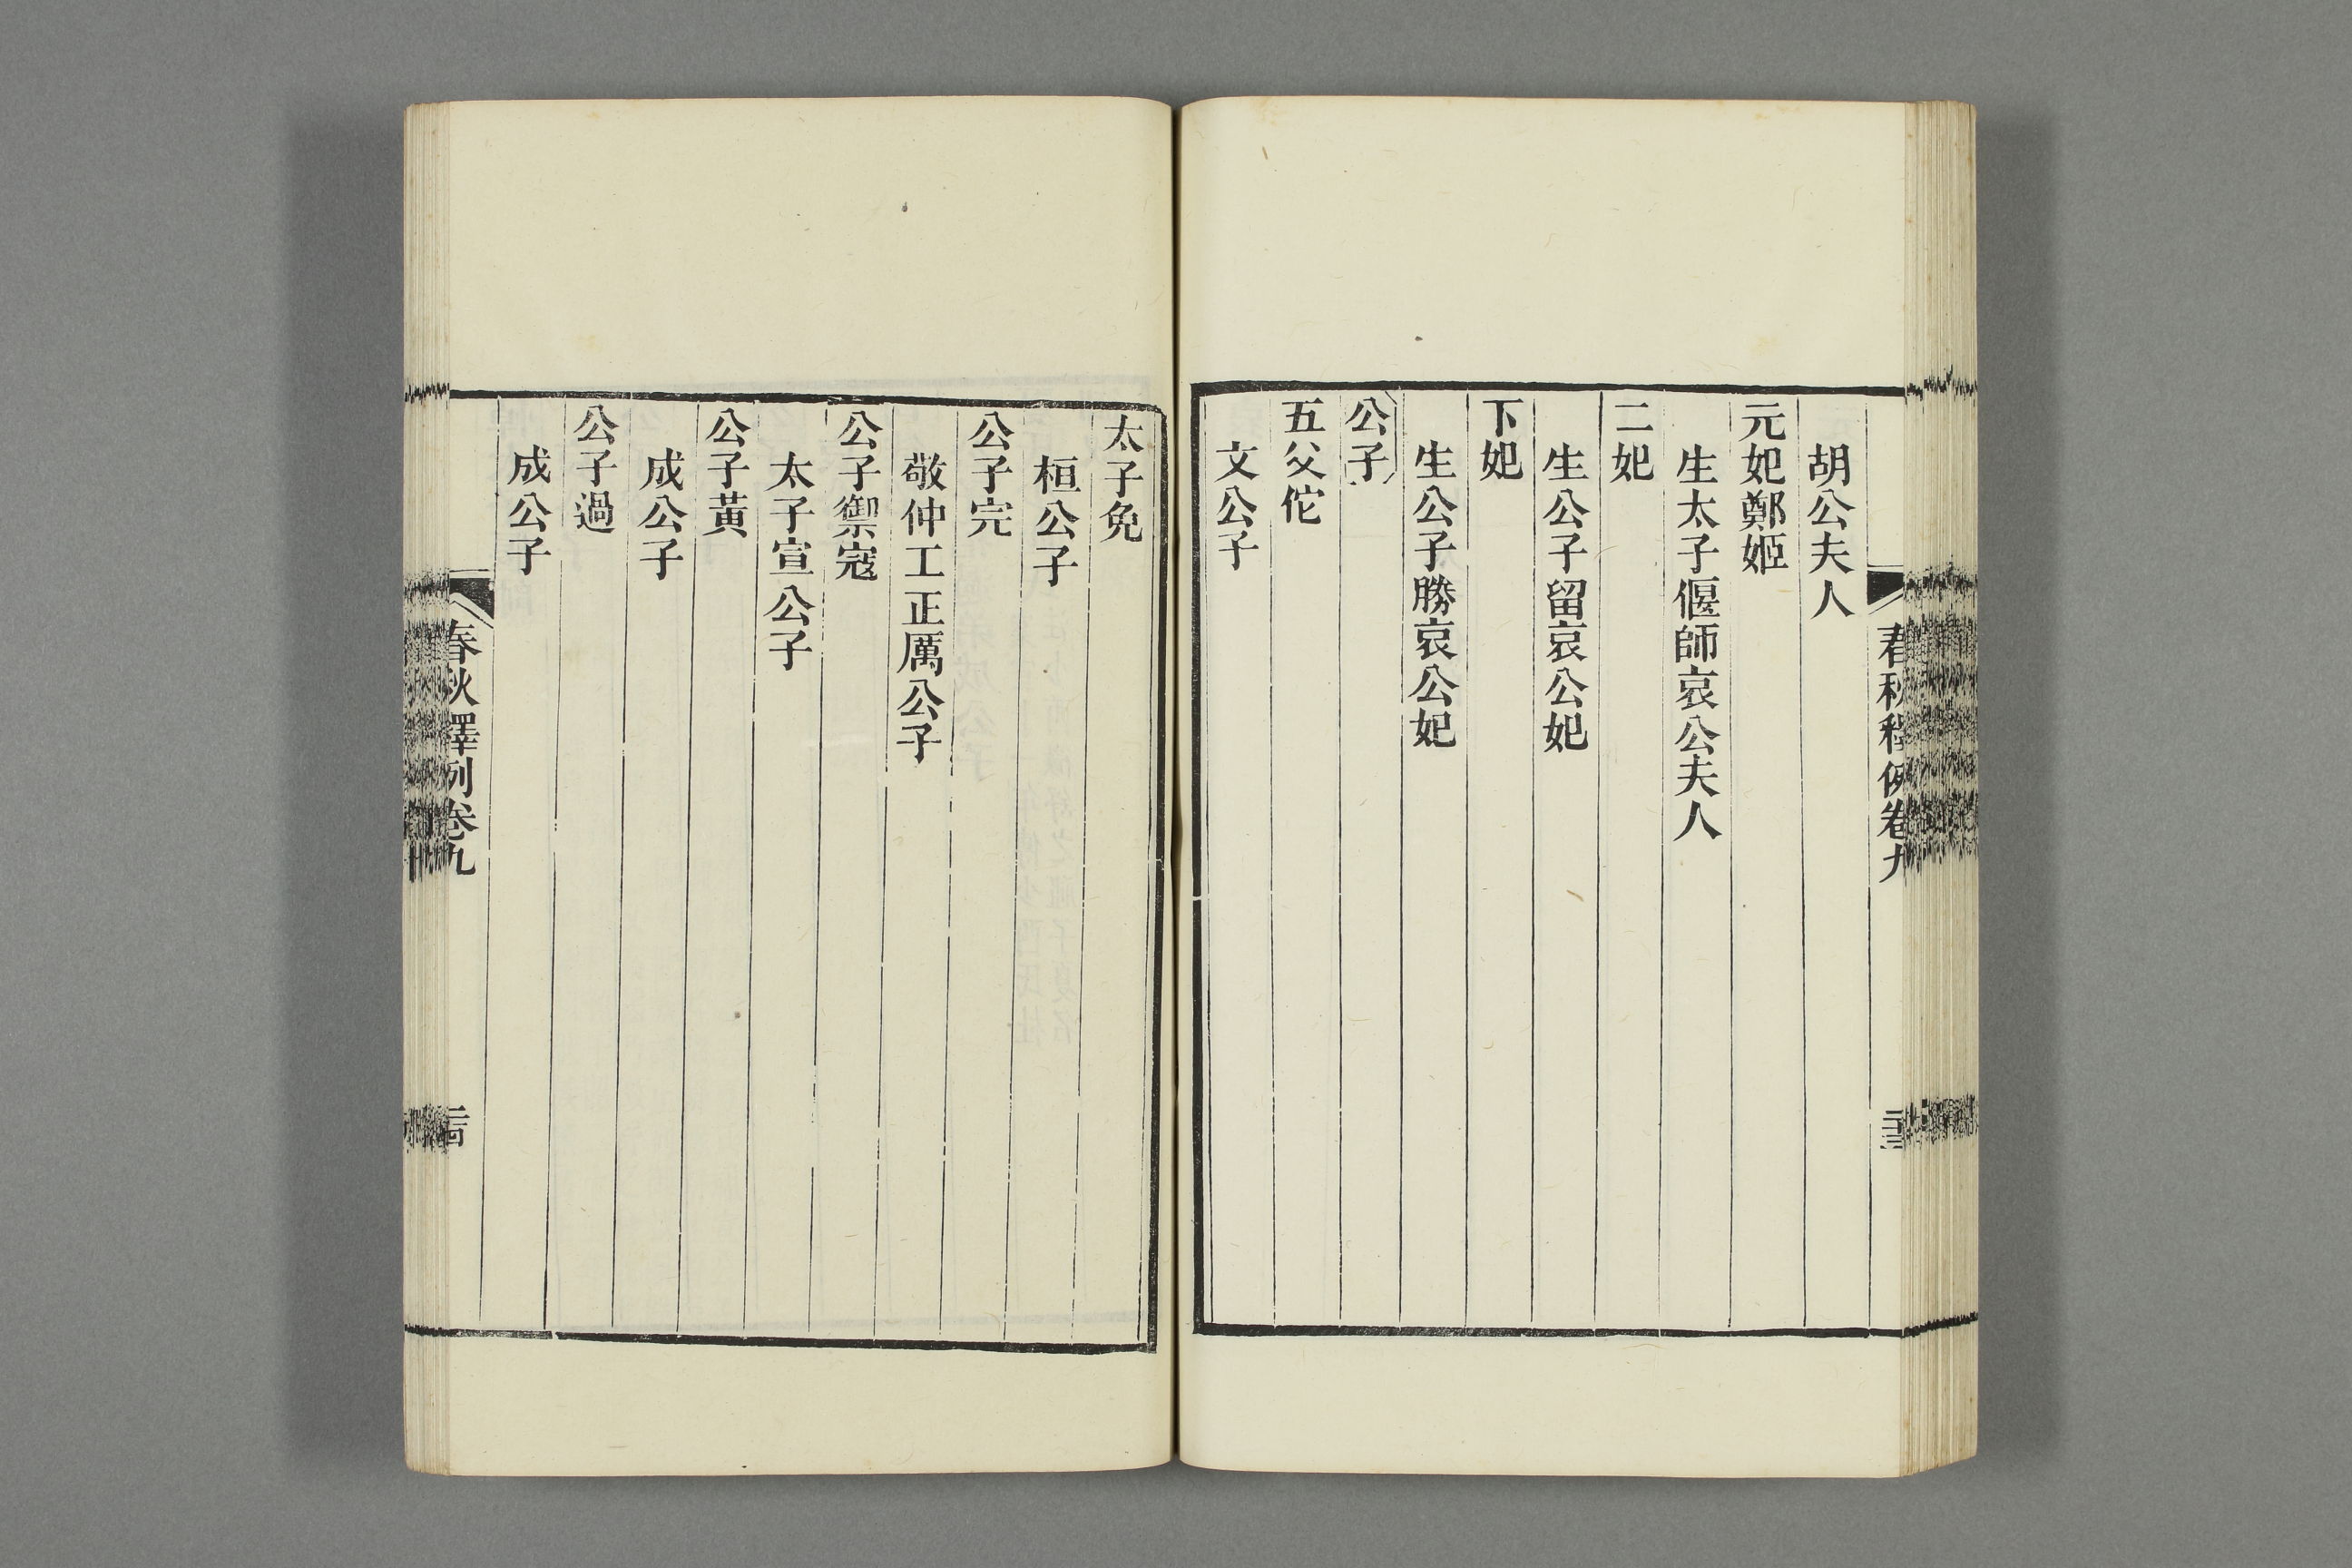 春秋釋例卷九
胡公夫人
元妃鄭姬
生太子偃師哀公夫人
二妃
生公子留哀公妃
下妃
生公子勝哀公妃
公子
五父佗
文公子
太子免
桓公子
公子完
敬仲工正厲公子
公子禦寇
太子宣公子
公子黃
成公子
公子過
成公子
春秋釋例卷九